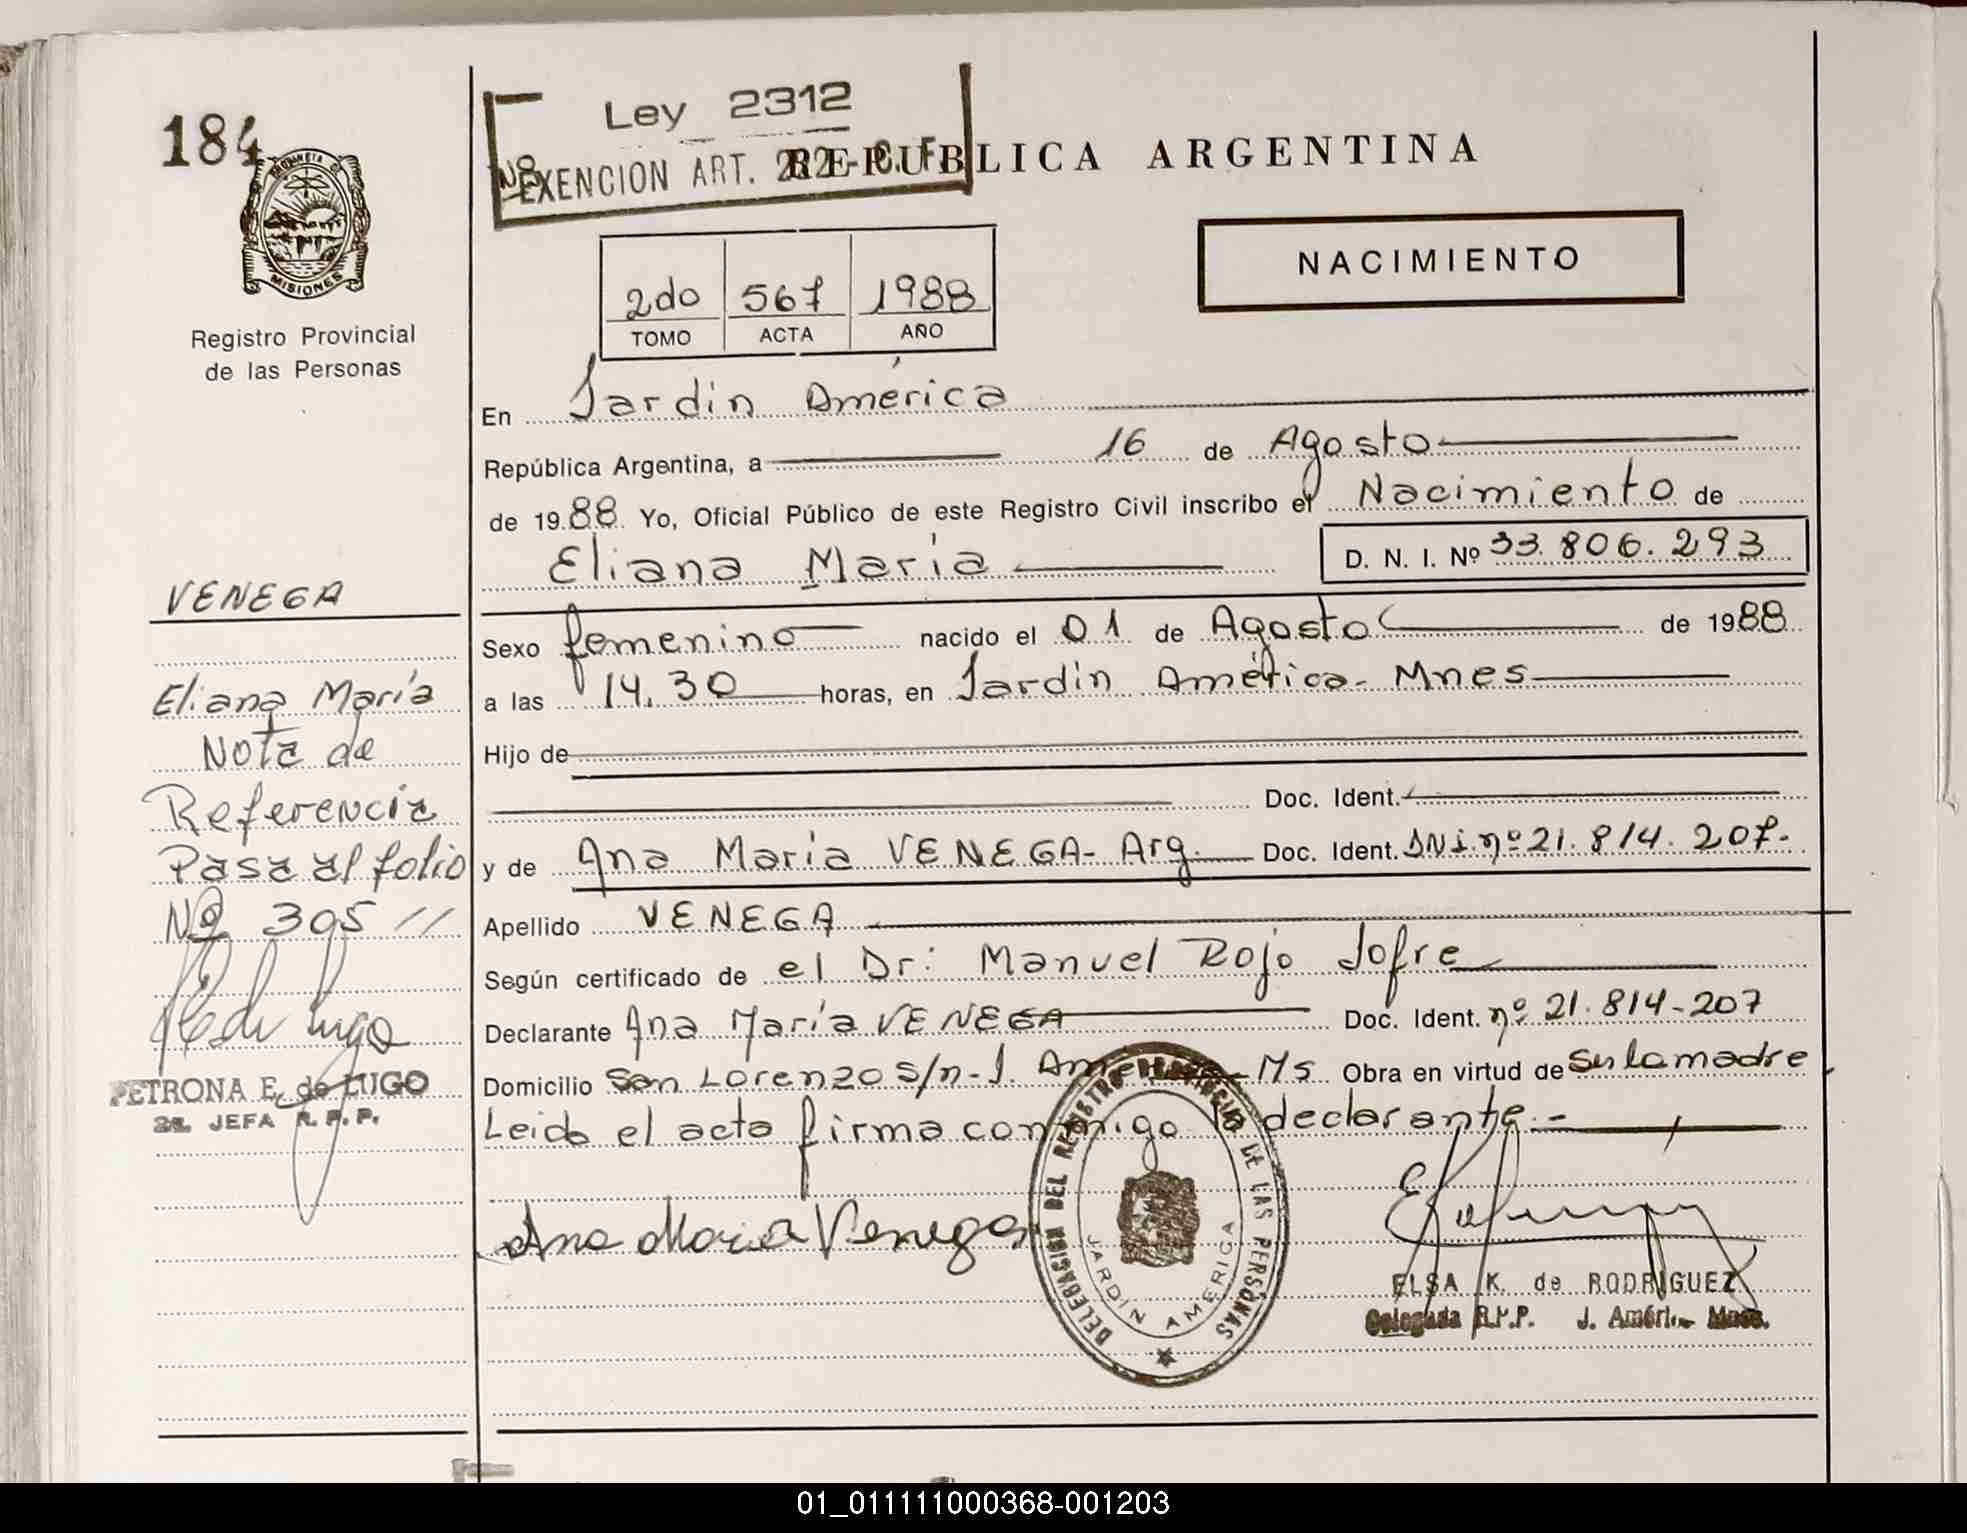 184
MISIONES
Registro Provincial
de las Personas
Ley 2312
EXENCION ART. 222 - C. F.
REPUBLICA ARGENTINA
NACIMIENTO
2do 567 1988
TOMO ACTA AÑO
En Jardin América
República Argentina, a 16 de Agosto
de 1988 Yo, Oficial Público de este Registro Civil inscribo el Nacimiento de
Eliana María D. N. I. Nº 33.806.293
Sexo femenino nacido el 01 de Agosto de 1988
a las 14,30 horas, en Jardin América - Mnes
Hijo de
Doc. Ident.
y de Ana María VENEGA - Arg. Doc. Ident. DNI. nº 21.814.207-
Apellido VENEGA
Según certificado de el Dr: Manuel Rojo Jofre
Declarante Ana María VENEGA Doc. Ident. nº 21.814-207
Domicilio San Lorenzo S/n - J. América - Ms Obra en virtud de Su la madre
Leida el acta firma conmigo la declarante.-
Ana Maria Venega
DELEGACION DEL REGISTRO PROVINCIAL DE LAS PERSONAS
JARDIN AMERICA
ELSA K. de RODRIGUEZ
Delegada R.P.P. J. América Mnes.
VENEGA
Eliana María
Nota de
Referencia
Pasa al folio
Nº 395 //
PETRONA E. de LUGO
2a. JEFA R.P.P.
01_011111000368-001203